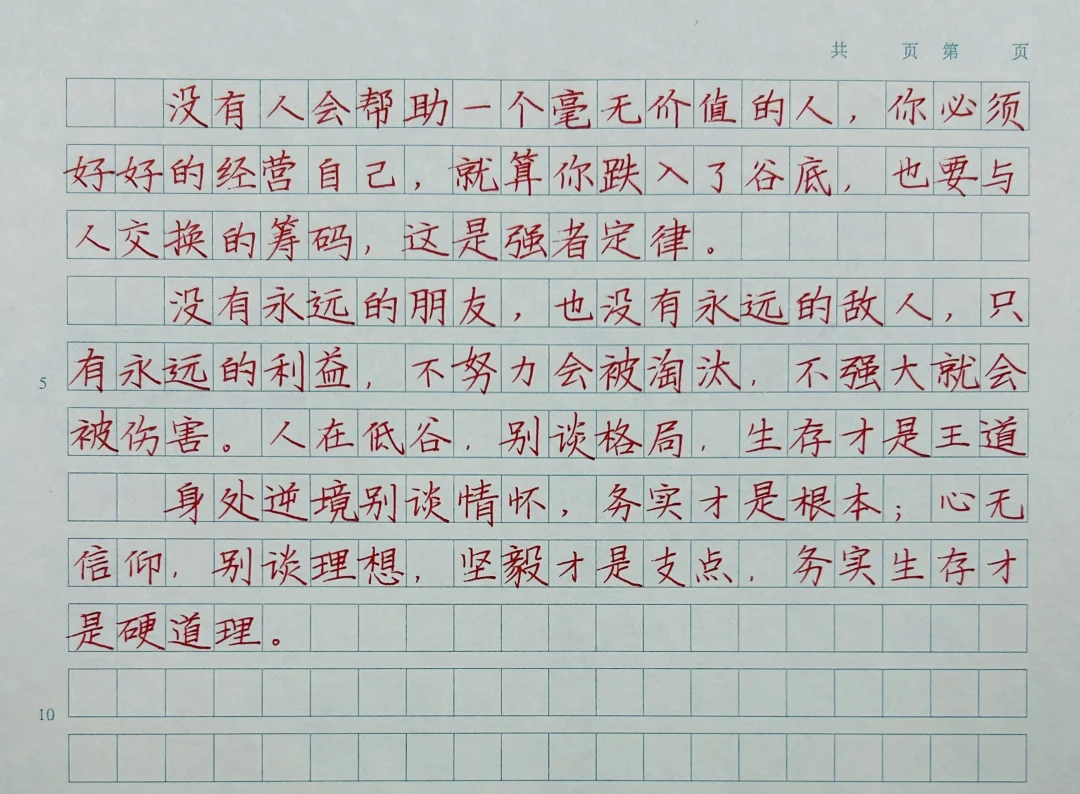 共 页 第 页
没有人会帮助一个毫无价值的人，你必须
好好的经营自己，就算你跌入了谷底，也要与
人交换的筹码，这是强者定律。
没有永远的朋友，也没有永远的敌人，只
5 有永远的利益，不努力会被淘汰，不强大就会
被伤害。人在低谷，别谈格局，生存才是王道
身处逆境别谈情怀，务实才是根本；心无
信仰，别谈理想，坚毅才是支点，务实生存才
是硬道理。
10